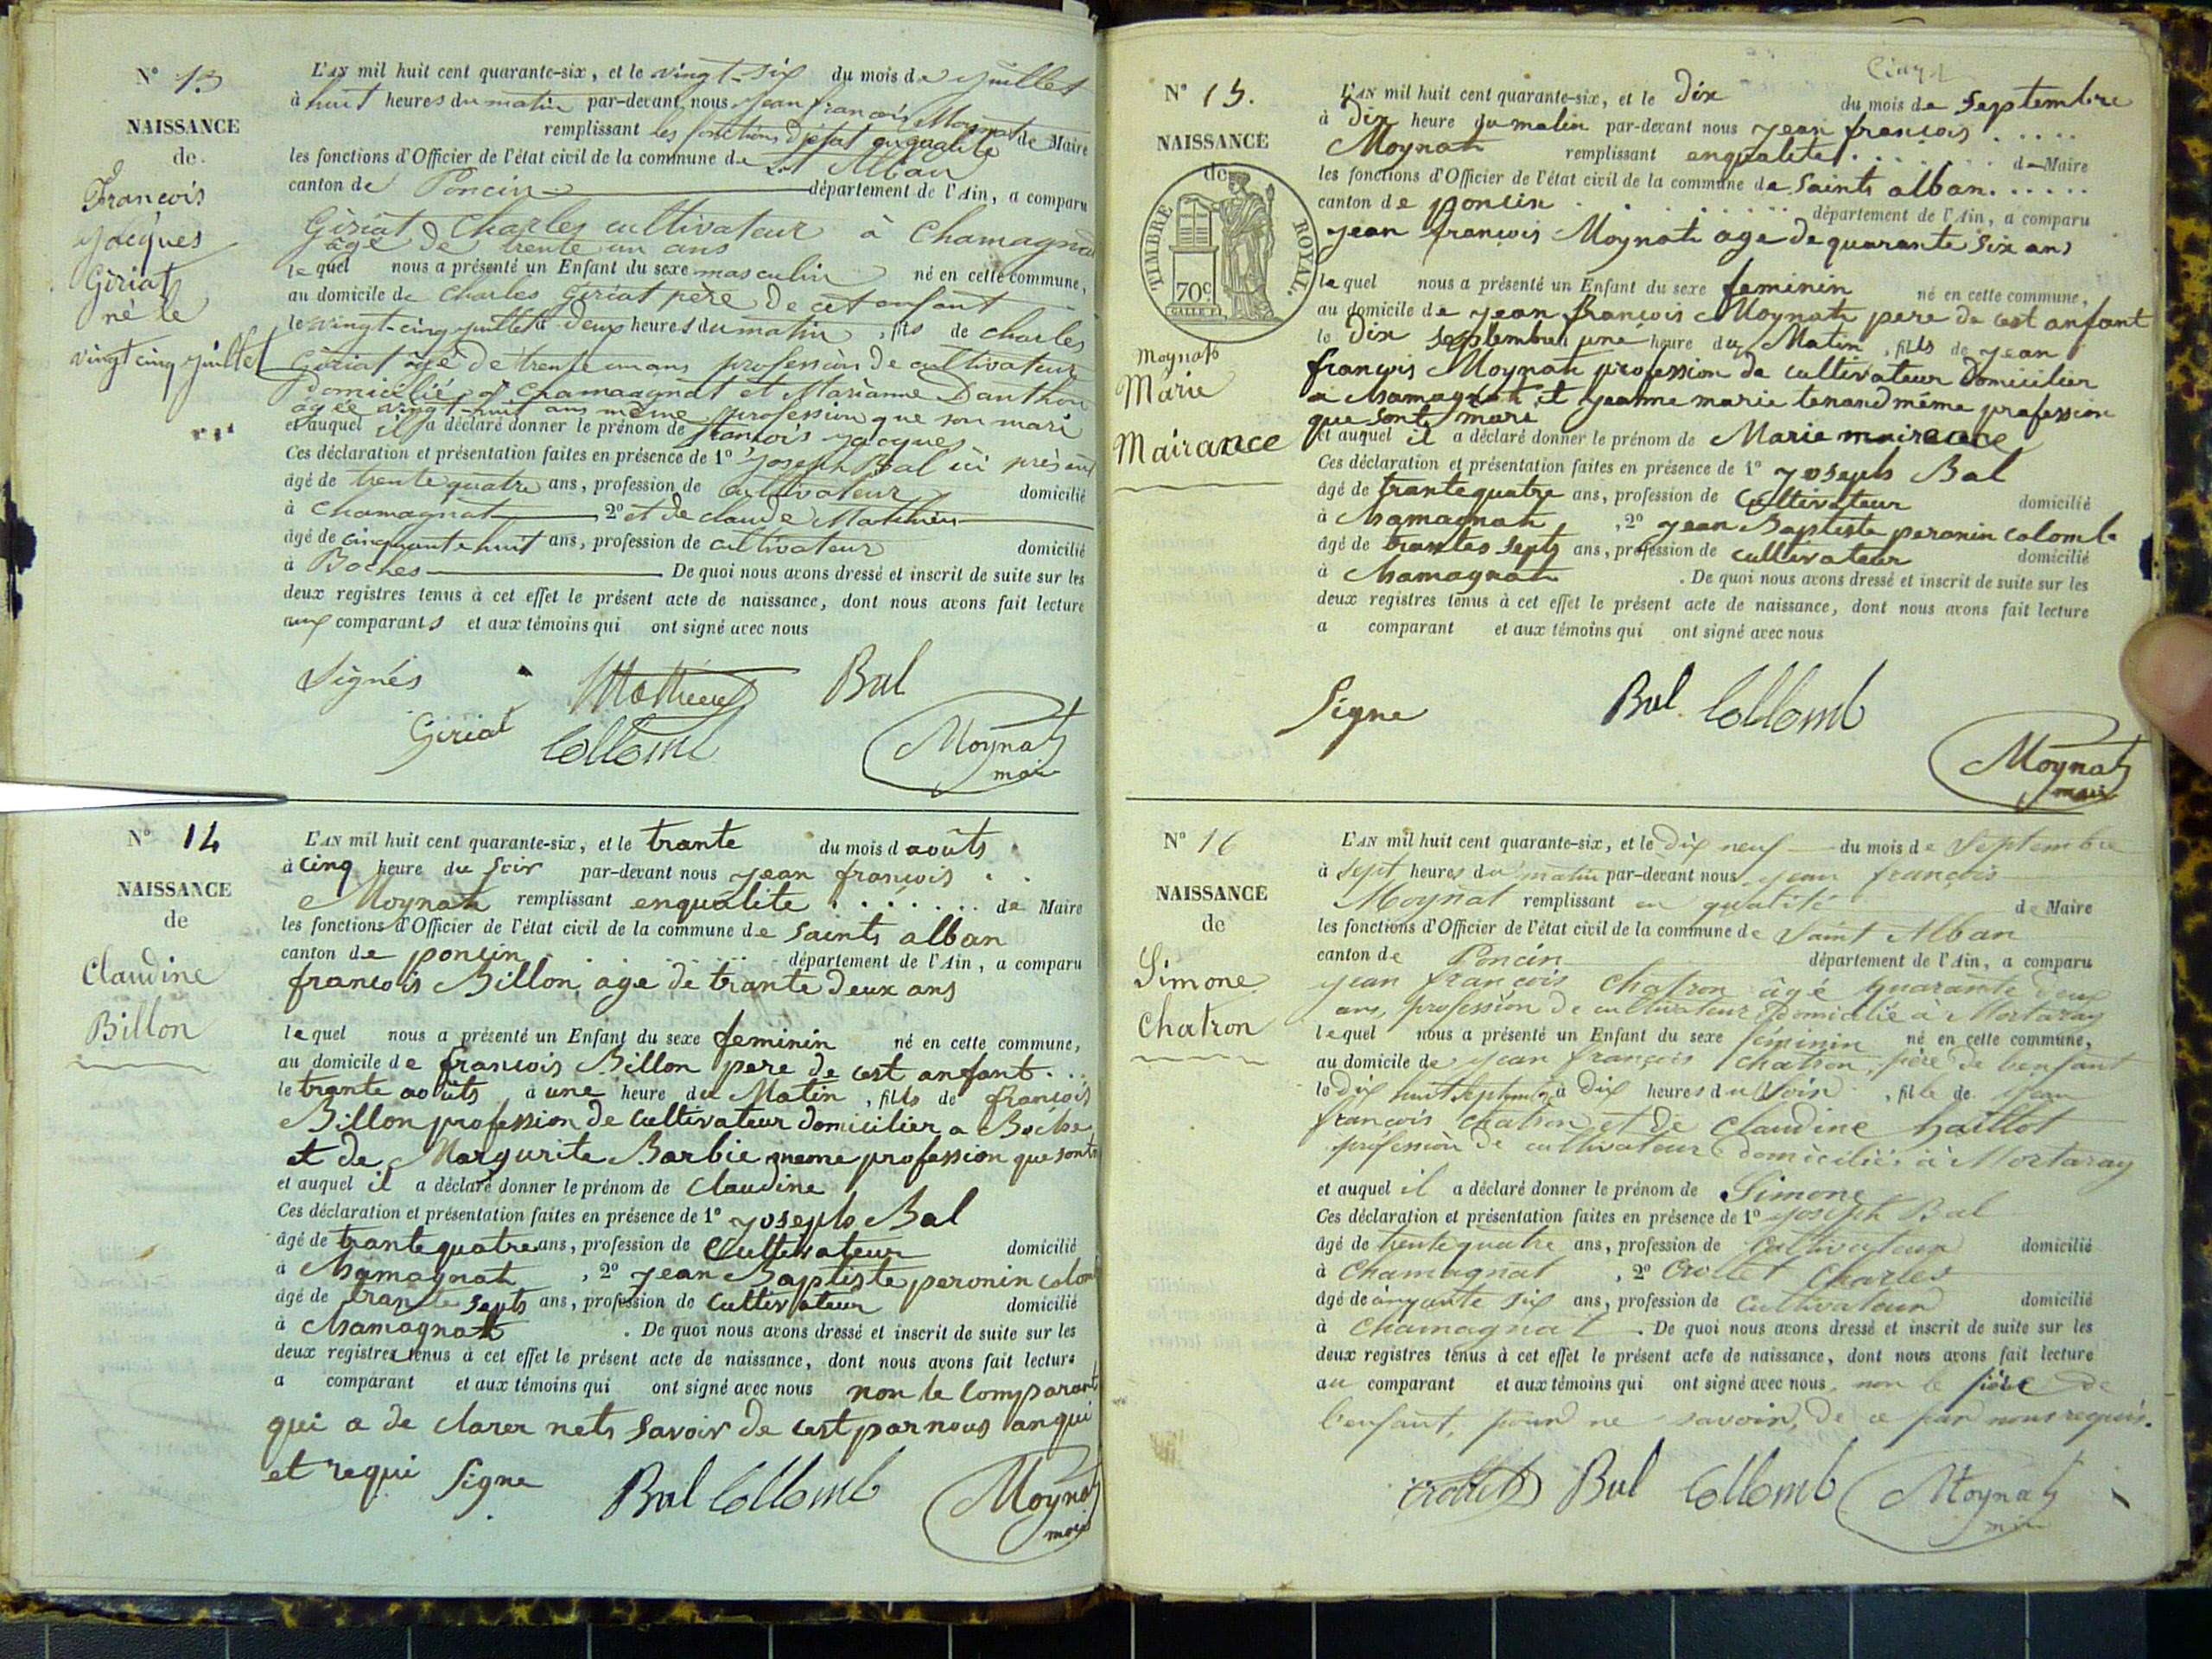 N° 13
NAISSANCE
de
François
Jacques
Giriat
né le
vingt cinq juillet
L'AN mil huit cent quarante-six, et le vingt-six du mois de juillet
à huit heures du matin par-devant nous Jean françois Moynat
remplissant les fonctions d'état en qualité de Maire
les fonctions d'Officier de l'état civil de la commune de St Alban
canton de Poncin département de l'Ain, a comparu
Giriat Charles cultivateur à Chamagnat
âgé de trente un ans
lequel nous a présenté un Enfant du sexe masculin né en cette commune,
au domicile de Charles Giriat père de cet enfant
le vingt-cinq juillet à deux heures du matin, fils de Charles
Giriat âgé de trente un ans profession de cultivateur
domicilié à Chamagnat et Marianne Danthon
âgée vingt-huit ans même profession que son mari
et auquel il a déclaré donner le prénom de françois Jacques
Ces déclaration et présentation faites en présence de 1° Joseph Bal ici présent
âgé de trente quatre ans, profession de cultivateur domicilié
à Chamagnat 2° et de claude Mathieu
âgé de cinquante huit ans, profession de cultivateur domicilié
à Boches De quoi nous avons dressé et inscrit de suite sur les
deux registres tenus à cet effet le présent acte de naissance, dont nous avons fait lecture
aux comparants et aux témoins qui ont signé avec nous
Signés Mathieu Bal
Giriat Collomb Moynat
maire
N° 14
NAISSANCE
de
Claudine
Billon
L'AN mil huit cent quarante-six, et le trante du mois d aoûts
à cinq heure du soir par-devant nous jean françois
Moynat remplissant enqualite de Maire
les fonctions d'Officier de l'état civil de la commune de saints alban
canton de poncin département de l'Ain, a comparu
francois Billon age de trante deux ans
lequel nous a présenté un Enfant du sexe feminin né en cette commune,
au domicile de francois Billon pere de cest anfant
le trante aoûts à une heure du Matin, fills de françois
Billon profession de cultivateur domicilier a Boche
et de Margurite Barbie meme profession que sont
et auquel il a déclaré donner le prénom de Claudine
Ces déclaration et présentation faites en présence de 1° joseph Bal
âgé de trante quatre ans, profession de Cultivateur domicilié
à chamagnat, 2° jean Baptiste peronin colomb
âgé de trante septs ans, profession de cultivateur domicilié
à chamagnat. De quoi nous avons dressé et inscrit de suite sur les
deux registres tenus à cet effet le présent acte de naissance, dont nous avons fait lecture
a comparant et aux témoins qui ont signé avec nous non le comparant
qui a de clarer nets savoir de cest par nous anqui
et requi Signe Bal Collomb Moynat
maire
N° 15.
NAISSANCE
de
TIMBRE ROYAL.
70c
Moynat
Marie
Mairance
L'AN mil huit cent quarante-six, et le dix du mois de septembre
à Dix heure du matin par-devant nous jean françois
Moynat remplissant enqualite de Maire
les fonctions d'Officier de l'état civil de la commune de saints alban
canton de poncin département de l'Ain, a comparu
jean françois Moynat age de quarante six ans
lequel nous a présenté un Enfant du sexe feminin né en cette commune,
au domicile de jean françois Moynat pere de cest anfant
le Dix septembre à une heure du Matin, fills de jean
françois Moynat profession de cultivateur domicilier
a chamagnat et jeanne marie tenand même profession
que sont mari
et auquel il a déclaré donner le prénom de Marie mairance
Ces déclaration et présentation faites en présence de 1° joseph Bal
âgé de trante quatre ans, profession de cultivateur domicilié
à chamagnat, 2° jean Baptiste peronin colomb
âgé de trantes septs ans, profession de cultivateur domicilié
à chamagnat. De quoi nous avons dressé et inscrit de suite sur les
deux registres tenus à cet effet le présent acte de naissance, dont nous avons fait lecture
a comparant et aux témoins qui ont signé avec nous
Signe Bal Collomb
Moynat
maire
N° 16
NAISSANCE
de
Simone
Chatron
L'AN mil huit cent quarante-six, et le dix neuf du mois de Septembre
à sept heures du matin par-devant nous jean françois
Moynat remplissant en qualité de Maire
les fonctions d'Officier de l'état civil de la commune de Saint Alban
canton de Poncin département de l'Ain, a comparu
jean françois Chatron âgé quarante deux
ans, profession de cultivateur domicilié à Mortaray
lequel nous a présenté un Enfant du sexe féminin né en cette commune,
au domicile de jean françois chatron, père de l'enfant
le dix huit septembre à dix heures du soir, fille de jean
françois chatron et de Claudine haillot
profession de cultivateur domiciliés à Mortaray
et auquel il a déclaré donner le prénom de Simone
Ces déclaration et présentation faites en présence de 1° joseph Bal
âgé de trente quatre ans, profession de cultivateur domicilié
à Chamagnat, 2° Crollet Charles
âgé de cinquante six ans, profession de cultivateur domicilié
à Chamagnat. De quoi nous avons dressé et inscrit de suite sur les
deux registres tenus à cet effet le présent acte de naissance, dont nous avons fait lecture
au comparant et aux témoins qui ont signé avec nous, non le père de
l'enfant, pour ne savoir, de ce par nous requis.
Crollet Bal Collomb Moynat
maire